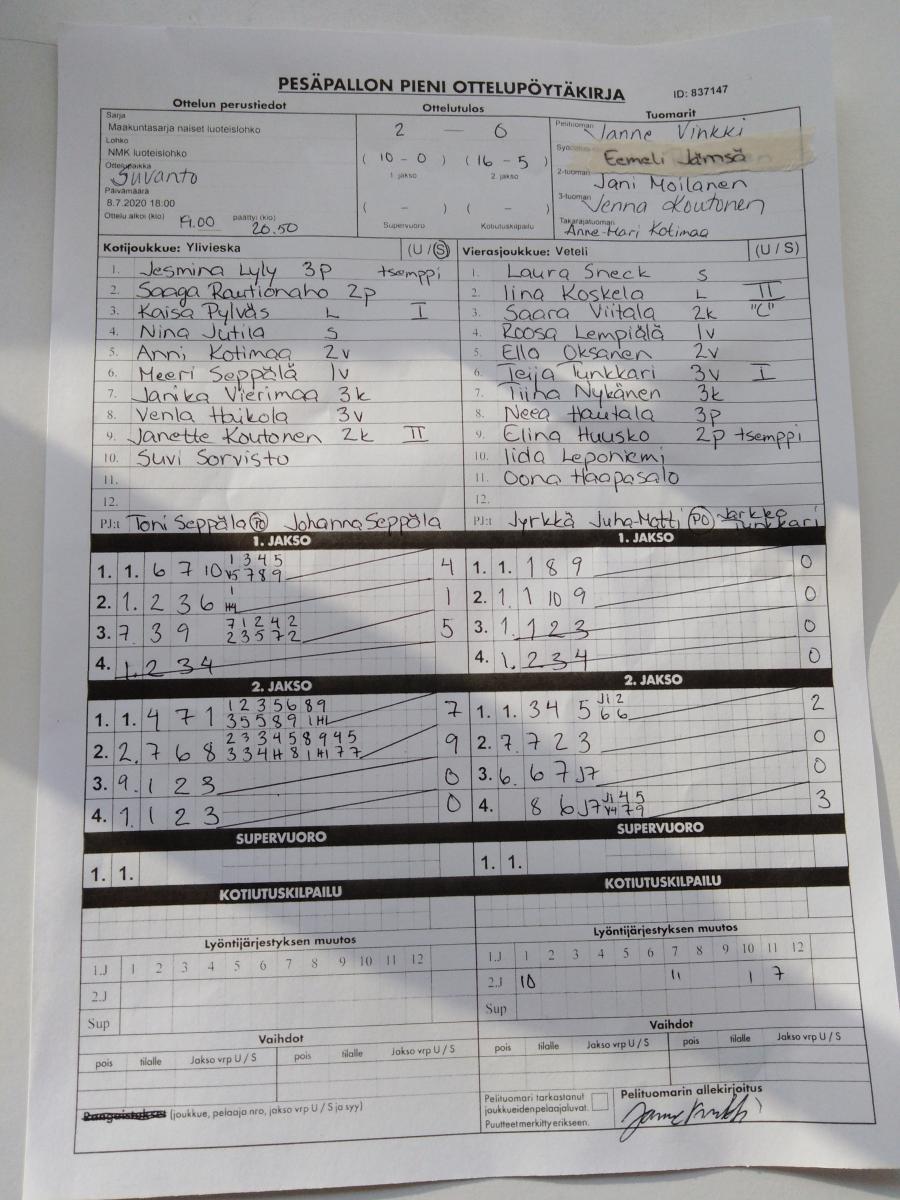 PESÄPALLON PIENI OTTELUPÖYTÄKIRJA
ID: 837147
Ottelun perustiedot
Ottelutulos
Tuomarit
Sarja
Maakuntasarja naiset luoteislohko
Lohko
NMK luoteislohko
Ottelupaikka
Suvanto
Päivämäärä
8.7.2020 18:00
Ottelu alkoi (klo) 19.00 päättyi (klo) 20.50
2 — 0
(10 - 0) (16 - 5)
1. jakso 2. jakso
( - ) ( - )
Supervuoro Kotiutuskilpailu
Pelituomari Janne Vinkki
Eemeli Jämsä
2-tuomari Jani Moilanen
3-tuomari Jenna Koutonen
Takarajatuomari Anne-Mari Kotimaa
Kotijoukkue: Ylivieska (U / S)
1. Jesmina Lyly 3p +semppi
2. Saaga Rautionaho 2p
3. Kaisa Pylväs L I
4. Nina Jutila S
5. Anni Kotimaa 2v
6. Meeri Seppälä 1v
7. Janika Vierimaa 3k
8. Venla Haikola 3v
9. Janette Koutonen 2k II
10. Suvi Sorvisto
11.
12.
PJ:t Toni Seppälä PO Johanna Seppälä
Vierasjoukkue: Veteli (U / S)
1. Laura Sneck S
2. Iina Koskela L II
3. Saara Viitala 2k "C"
4. Roosa Lempiälä 1v
5. Ella Oksanen 2v
6. Teija Tunkkari 3v I
7. Tiina Nykänen 3k
8. Neea Hautala 3p
9. Elina Huusko 2p +semppi
10. Iida Leponiemi
11. Oona Haapasalo
12.
PJ:t Jyrkkä Juha-Matti PO Jarkko Tunkkari
1. JAKSO
1. 1. 6 7 10 1 3 4 5
V5 7 8 9 4
2. 1. 2 3 6 1
H4 1
3. 7. 3 9 7 1 2 4 2
2 3 5 7 2 5
4. 1. 2 3 4
1. JAKSO
1. 1. 1 8 9 0
2. 1. 1 10 9 0
3. 1. 1 2 3 0
4. 1. 2 3 4 0
2. JAKSO
1. 1. 4 7 1 1 2 3 5 6 8 9
3 5 5 8 9 1 H1 7
2. 2. 7 6 8 2 3 3 4 5 8 9 4 5
3 3 4 H 8 1 H1 7 7 9
3. 9. 1 2 3 0
4. 1. 1 2 3 0
2. JAKSO
1. 1. 3 4 5 J1 2
6 6 2
2. 7. 7 2 3 0
3. 6. 6 7 J7 0
4. 8 6 J7 J1 4 5
V4 7 9 3
SUPERVUORO
1. 1.
SUPERVUORO
1. 1.
KOTIUTUSKILPAILU
KOTIUTUSKILPAILU
Lyöntijärjestyksen muutos
1.J 1 2 3 4 5 6 7 8 9 10 11 12
2.J
Sup
Lyöntijärjestyksen muutos
1.J 1 2 3 4 5 6 7 8 9 10 11 12
2.J 10 11 1 7
Sup
Vaihdot
pois tilalle Jakso vrp U / S pois tilalle Jakso vrp U / S
Vaihdot
pois tilalle Jakso vrp U / S pois tilalle Jakso vrp U / S
Rangaistukset (joukkue, pelaaja nro, jakso vrp U / S ja syy)
Pelituomari tarkastanut
joukkueiden pelaajaluvat.
Puutteet merkitty erikseen.
Pelituomarin allekirjoitus